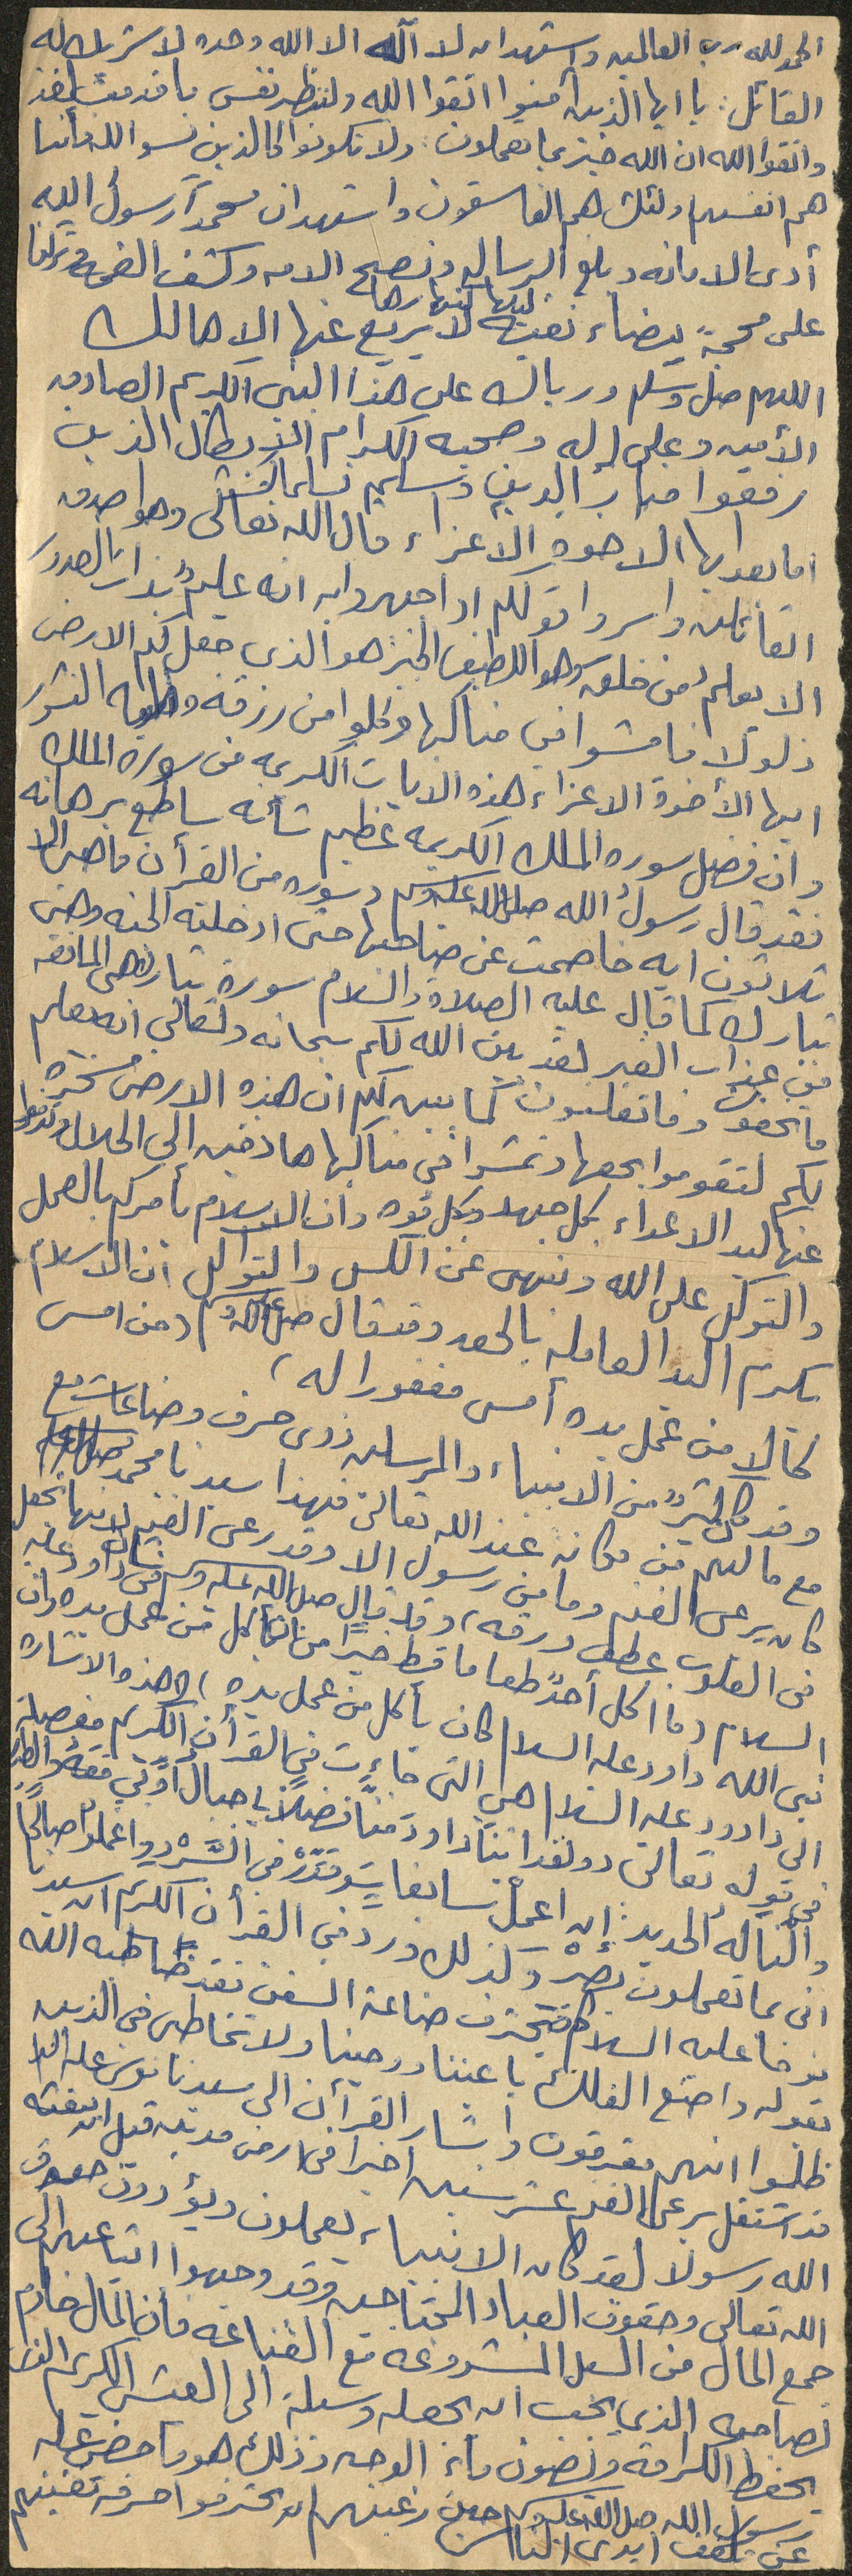 الحمد لله رب العالمين واشهد ان لا اله الا الله وحده لا شريك له
القائل: يا ايها الذين آمنوا اتقوا الله ولتنظر نفس ما قدمت لغد
واتقوا الله ان الله خبير بما تعملون. ولا تكونوا كالذين نسوا الله فأنسا
هم انفسهم اولئك هم الفاسقون واشهد ان محمداً رسول الله
أدى الامانه وبلغ الرساله ونصح الامه وكشف الغمه وتركنا
على محجة بيضاء نقيه ليلها كنهارها لا يزيغ عنها الا هالك
اللهم صل وسلم وبارك على هذا النبي الكريم الصادق
الأمين وعلى اله وصحبه الكرام الابطال الذين
رفعوا منار الدين وسلم تسليما كثيرا
اما بعد ايها الاخوه الاعزاء قال الله تعالى وهو اصدق
القائلين واسروا قولكم او اجهروا به انه عليم بذات الصدور
الا يعلم من خلق وهو اللطيف الخبير هو الذي جعل لكم الارض
ذلولا فامشوا في مناكبها وكلوا من رزقه واليه النشور
ايها الأخوة الاعزاء هذه الايات الكريمه من سورة الملك
وان فضل سوره الملك الكريمه عظيم شأنه ساطع برهانه
فقد قال رسول الله صلى الله عليه وسلم سوره من القرآن ما هي الا
ثلاثون ايه خاصمت عن صاحبها حتى ادخلته الجنه وهي
تبارك كما قال عليه الصلاة والسلام سورة تبارك هي المانعه
من عذاب القبر لقد بين الله لكم سبحانه وتعالى انه يعلم
ما تخفون وما تعلنون كما بين لكم ان هذه الارض مسخره
لكم لتقوموا بحقها وتمشوا في مناكبها هادفين الى الحلال وتدفعوا
عنها كيد الاعداء بكل جهد وكل قوه وان الاسلام يأمركم بالعمل
والتوكل على الله وينهى عن الكسل والتواكل ان الاسلام
يكرم اليد العامله بالحق وقد قال صلى الله عليه وسلم (من امسى
كالا من عمل يده أمسى مغفورا له)
وقد كان كثير من الانبياء والمرسلين ذوي حرف وصناعات مع
مع مالهم من مكانه عند الله تعالى فهذا سيدنا محمد صلى الله عليه وسلم
كان يرعى الغنم وما من رسول الا وقد رعى الغنم لانها تجعل
في القلوب عطف ورقه، وقد قال صلى الله عليه وسلم في شأن داود عليه
السلام (ما اكل أحدً طعاما قط خيراً من ان يأكل من عمل يده وان
نبي الله داود عليه السلام كان يأكل من عمل يده) وهذه الاشاره
الى داود عليه السلام هي التي جاءت في القرآن الكريم مفصلة
في قوله تعالى ولقد اتينا داود منا فضلاً يا جبال أوّبي معهُ والطير
والنا لهُ الحديد: ان اعمل سابغات وقدّر في السّرد واعملوا صالحاً
اني بما تعملون بصير وكذلك ورد في القرآن الكريم ان سيدنا
نوحا عليه السلام كان يحترف صناعة السفن فقد خاطبه الله
بقوله واصنع الفلك بأعيننا ووحينا ولا تخاطبني في الذين
ظلموا انهم مغرقون واشار القرآن الى سيدنا موسى عليه السلام
قد اشتغل برعي الغنم عشر سنين اجيرا في ارض مدين قبل ان يبعثه
الله رسولا لقد كان الانبياء يعملون ويؤدون حقوق
الله تعالى وحقوق العباد المحتاجين وقد وجهوا اتباعهم الى
جمع المال من السبل المشروعه مع القناعه فأن المال خادم
لصاحبه الذي يجب ان يجعله وسيلة الى العيش الكريم الذي
يحفظ الكرامة ويصون ماء الوجه وذلك هو ما حض عليه
رسول الله صلى الله عليه وسلم حين رغبهم ان يحترفوا حرفه تغنيهم
عن ايدي الناس